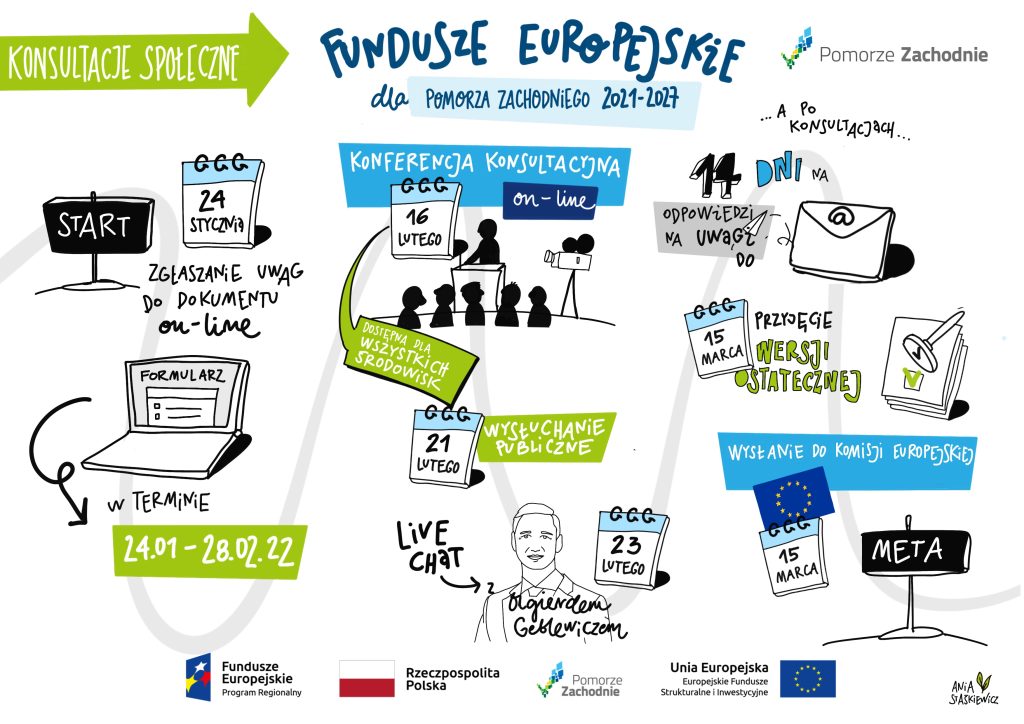 KONSULTACJE SPOŁECZNE
FUNDUSZE EUROPEJSKIE
dla POMORZA ZACHODNIEGO 2021-2027
Pomorze Zachodnie
START
24
STYCZNIA
ZGŁASZANIE UWAG
DO DOKUMENTU
on-line
FORMULARZ
W TERMINIE
24.01 - 28.02.22
KONFERENCJA KONSULTACYJNA
on-line
16
LUTEGO
DOSTĘPNA DLA
WSZYSTKICH
ŚRODOWISK
21
LUTEGO
WYSŁUCHANIE
PUBLICZNE
LIVE
CHAT
Z
Olgierdem
Geblewiczem
23
LUTEGO
... A PO
KONSULTACJACH...
14 DNI NA
ODPOWIEDZI
NA UWAGI
DO
@
15
MARCA
PRZYJĘCIE
WERSJI
OSTATECZNEJ
WYSŁANIE DO KOMISJI EUROPEJSKIEJ
15
MARCA
META
Fundusze
Europejskie
Program Regionalny
Rzeczpospolita
Polska
Pomorze
Zachodnie
Unia Europejska
Europejskie Fundusze
Strukturalne i Inwestycyjne
ANIA
STAŚKIEWICZ